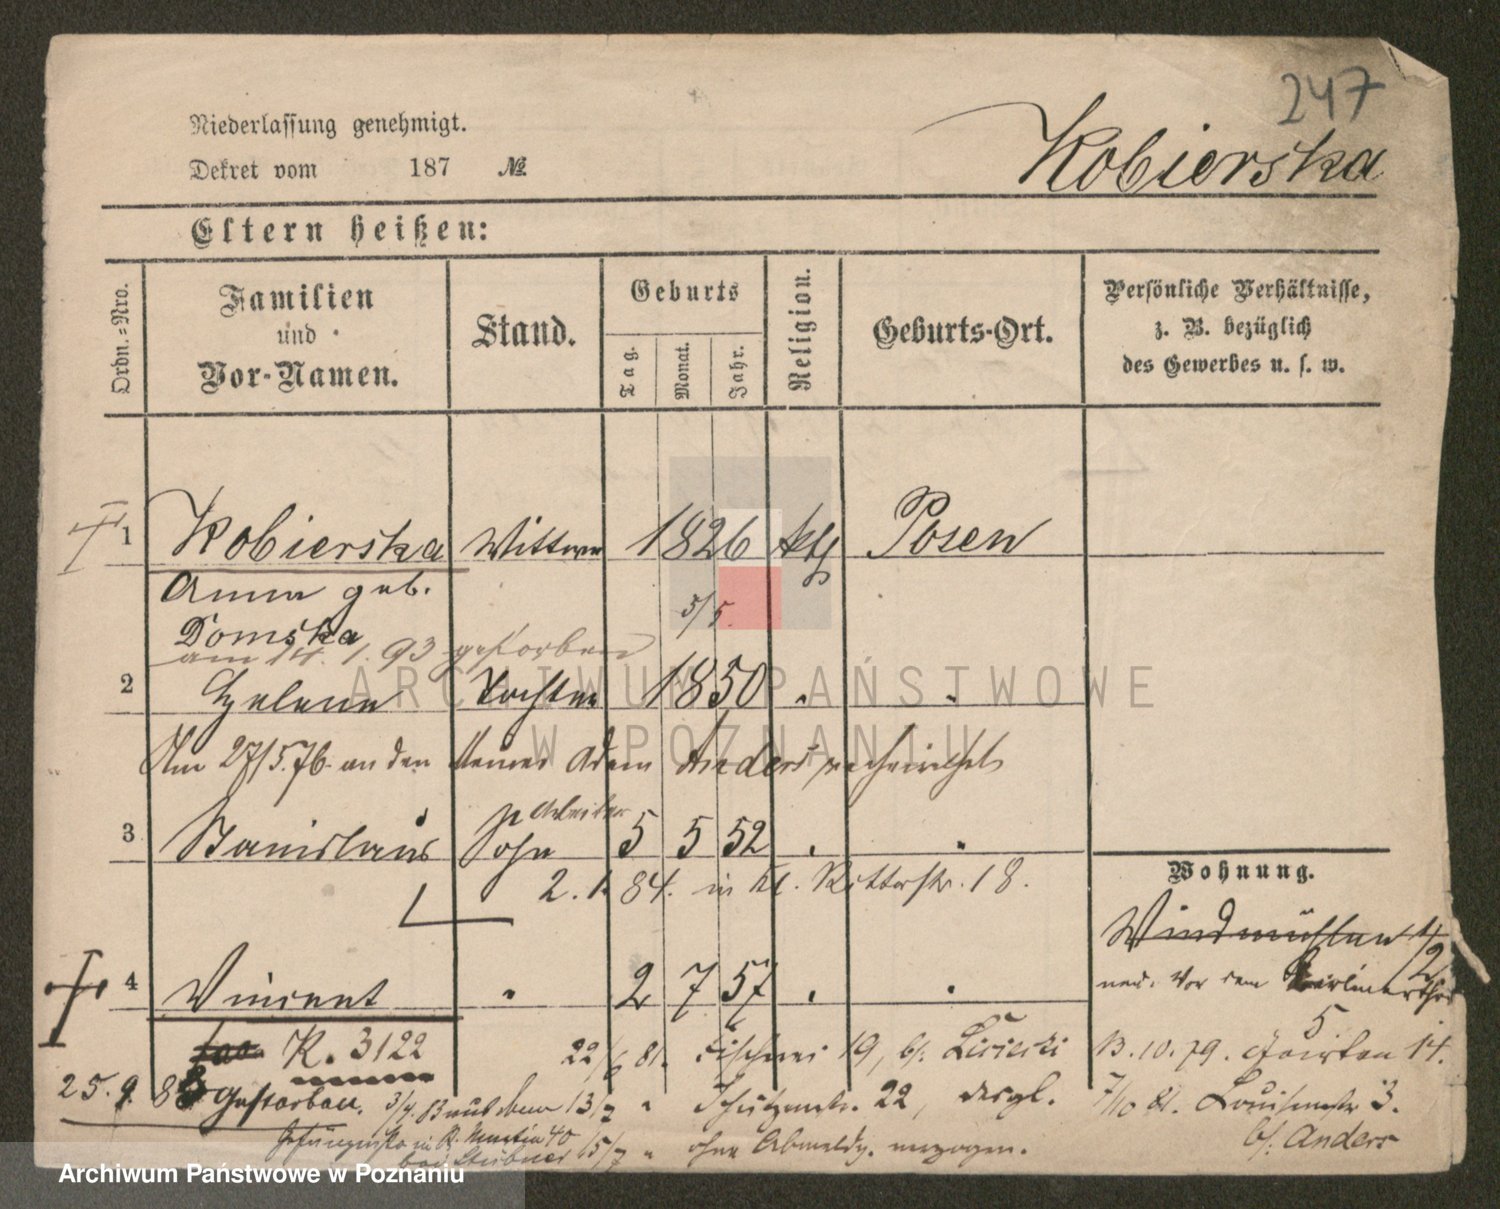 247
Niederlassung genehmigt.
Dekret vom 187 №
Kobierska
Eltern heißen:
Ordn.-Nro.
Familien und Vor-Namen.
Stand.
Geburts
Tag.
Monat.
Jahr.
Religion.
Geburts-Ort.
Persönliche Verhältnisse, z. B. bezüglich des Gewerbes u. s. w.
1 Kobierska Wittwe 1826 kth Posen
Anna geb.
Domska 5/5.
am 14. 1. 93 gestorben
2 Helena Tochter 1850 " "
Am 27/5. 76. an den Adam Anders verheirathet
Arbeiter
3 Stanislaus Sohn 5 5 52 " "
2. 1. 84. in kl. Ritterstr. 18.
Wohnung.
Windmühlen 1/2
neu. Vor dem Berlinerthor 5
4 Vincent " 2 7 57 " "
K. 3122
22/6 81. Fischerei 19, b/. Lisiecki
13. 10. 79. 14.
25. 9. 88 gestorben. 3/4. 83 13/7 " Schützenstr. 22, desgl.
7/10 81. Louisenstr 3.
b/. Anders
Gefängniss in St. Martin 40 15/7 " ohne Abmeldg. verzogen.
bei Stübner
ARCHIWUM PAŃSTWOWE
W POZNANIU
Archiwum Państwowe w Poznaniu